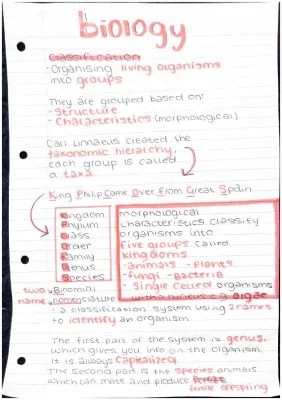 biology
classification
· Organising living organisms
into groups
They are grouped based on:
- Structure
- Characteristics (morphological)
Carl Linnaeus created the
taxonomic hierarchy,
each group is called
a taxa.
King Philip Came Over From Great Spain
Kingdom
Phylum
Class
Order
Family
Genus
Species
morphological
characteristics classify
organisms into
five groups called
kingdoms
- animals - Plants
- fungi - Bacteria
- Single celled organisms
with a nucleus e.g algae
two Binomial
name nomenclature
: a classification system using 2 names
to identify an organism
The first part of the system is genus,
which gives you info on the organism,
it is always Capitalized
The second part is the species animals
which can mate and produce
fertile offspring